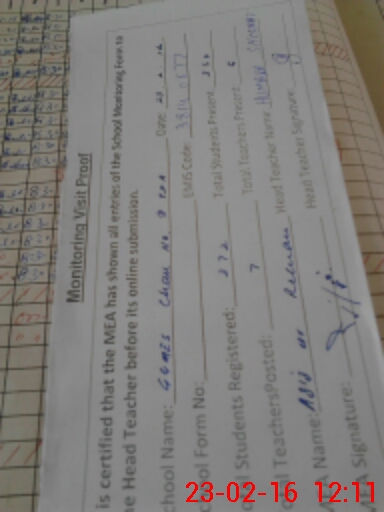 Monitoring Visit Proof
is certified that the MEA has shown all entries of the School Monitoring Form to
e Head Teacher before its online submission.
chool Name: GGMES Chak No. 9 Date: 23. 2. 16.
chool Form No: EMIS Code:
Students Registered: 272 Total Students Present 250
TeachersPosted: 7 Total Teachers Present 6
A Name: Abid ur Rehman Head Teacher Name
A Signature: Head Teacher Signature
23-02-16 12:11